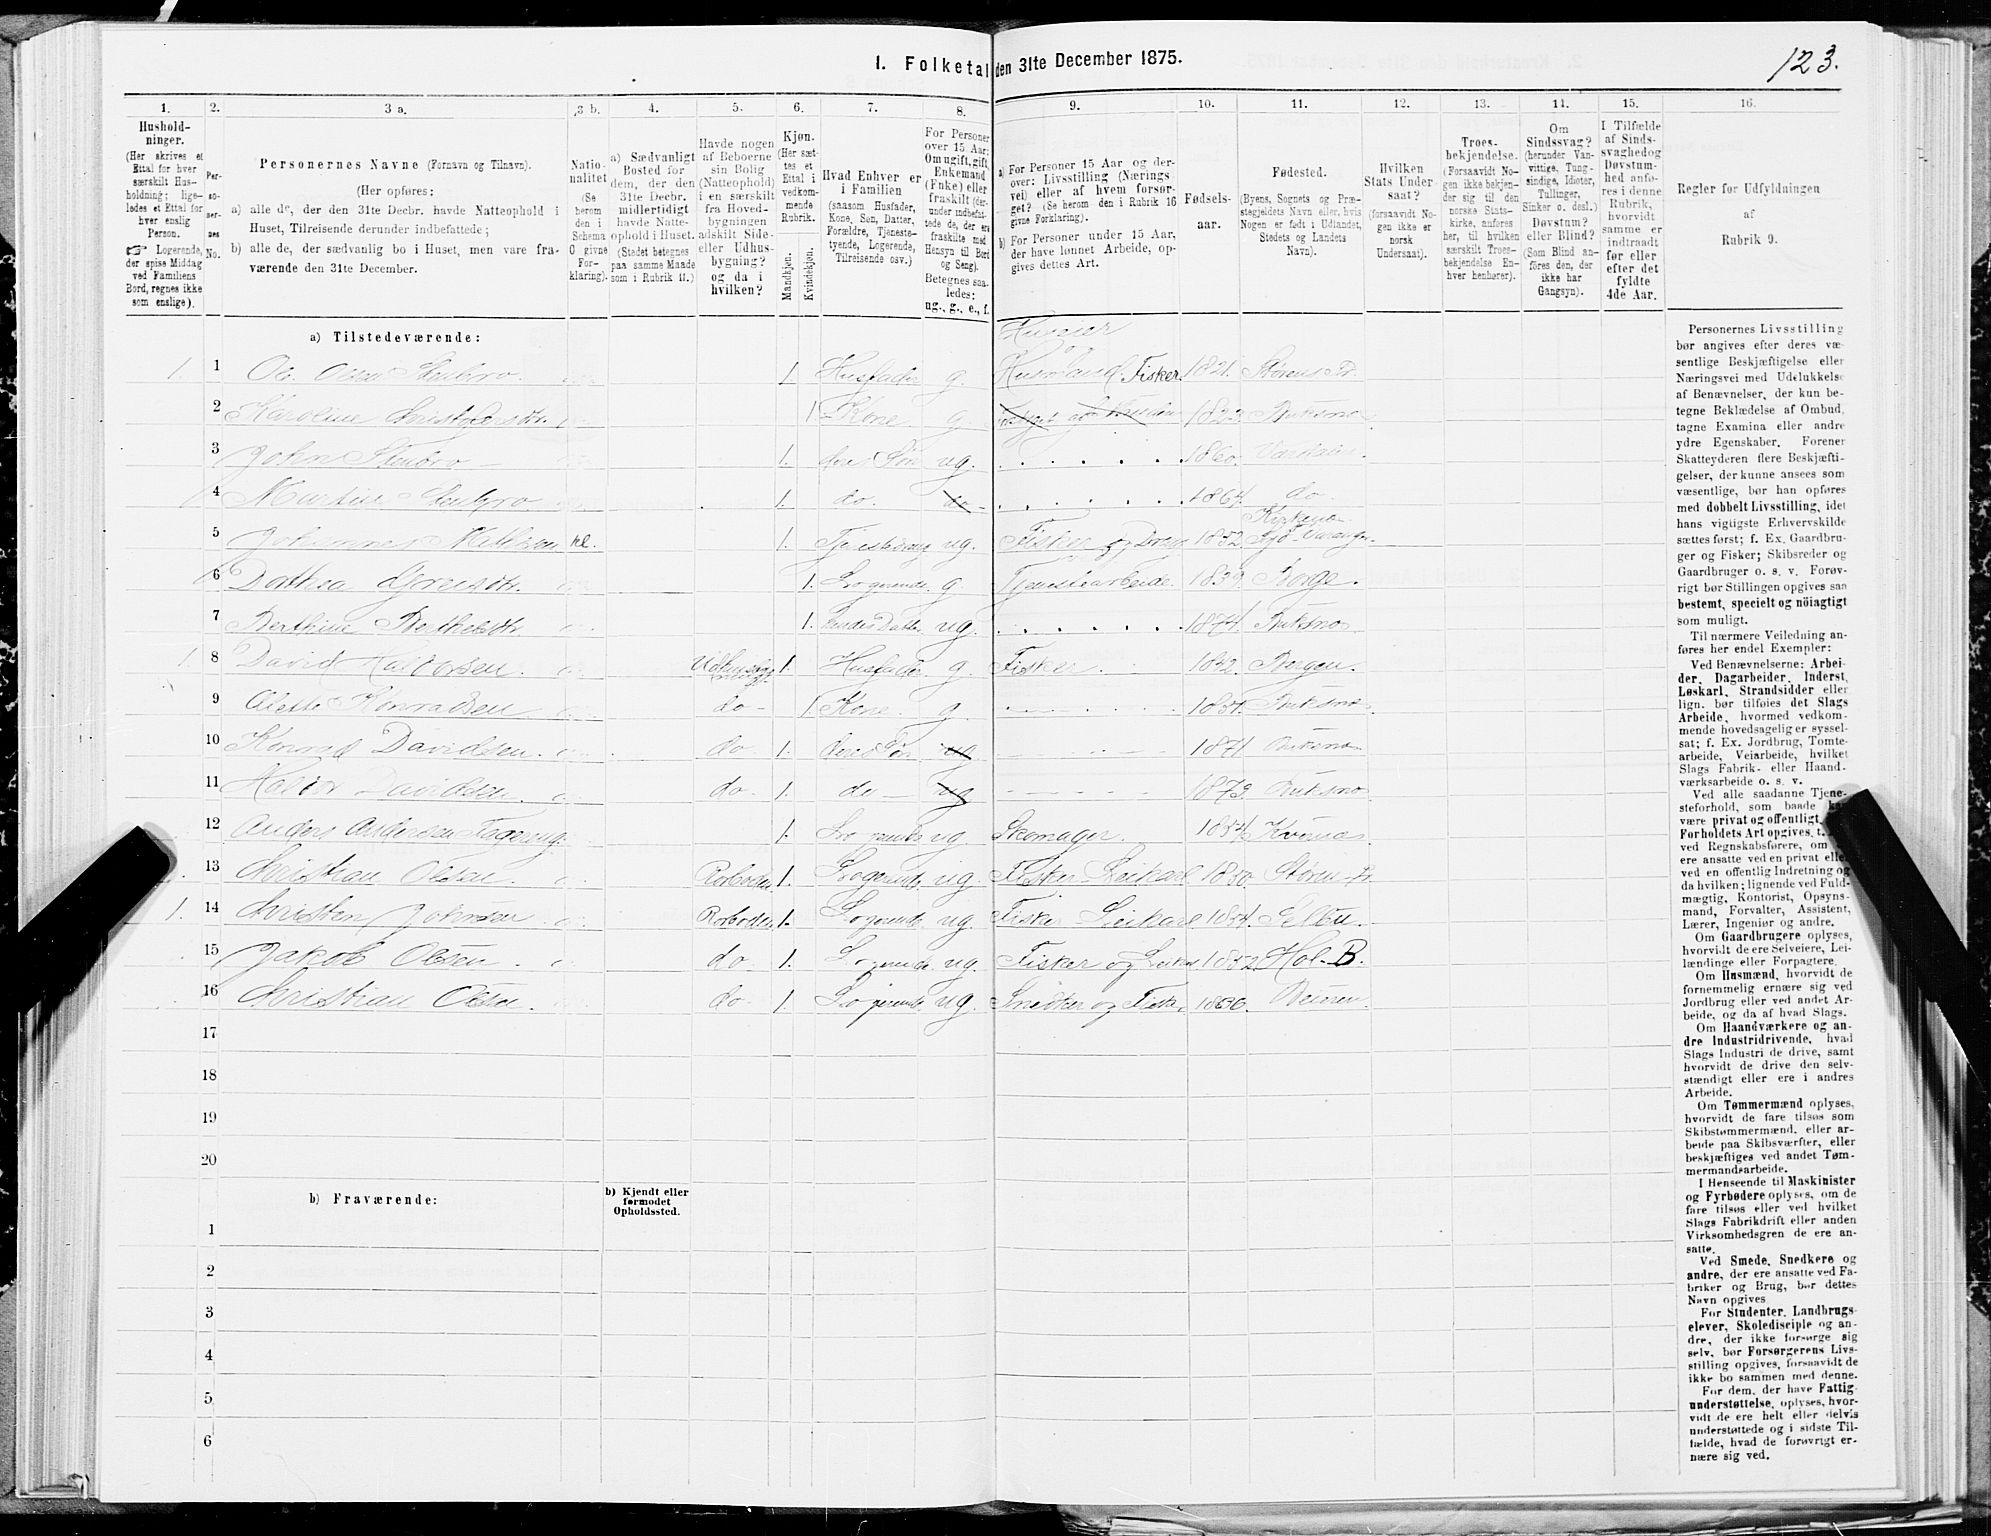 1. Folketal den 31te December 1875.
123.
1. 2. 3 a. 3 b. 4. 5. 6. 7. 8. 9. 10. 11. 12. 13. 14. 15. 16.
Hushold-
ninger.
(Her skrives et
Ettal for hver
særskilt Hus-
holdning; lige-
ledes et Ettal for
hver enslig
Person.
☞ Logerende,
der spise Middag
ved Familiens
Bord, regnes ikke
som enslige).
Per-
so-
ner-
nes
No.
Personernes Navne (Fornavn og Tilnavn).
(Her opføres:
a) alle de, der den 31te Decbr. havde Natteophold i
Huset, Tilreisende derunder indbefattede;
b) alle de, der sædvanlig bo i Huset, men vare fra-
værende den 31te December.
Natio-
nalitet
(Se
herom
den i
Schema
0 givne
For-
klaring).
a) Sædvanligt
Bosted for
dem, der den
31te Decbr.
midlertidigt
havde Natte-
ophold i Huset.
(Stedet betegnes
paa samme Maade
som i Rubrik 11.)
Havde nogen
af Beboerne
sin Bolig
(Natteophold)
i en særskilt
fra Hoved-
bygningen
adskilt Side-
eller Udhus-
bygning?
og da i
hvilken?
Kjøn.
(Her sæt-
tes et
Ettal i
vedkom-
mende
Rubrik.
Mandkjøn.
Kvindekjøn.
Hvad Enhver er
i Familien
(saasom Husfader,
Kone, Søn, Datter,
Forældre, Tjeneste-
tyende, Logerende,
Tilreisende osv.)
For Personer
over 15 Aar:
Om ugift, gift,
Enkemand
(Enke) eller
fraskilt (der-
under indbefat-
tede de, der ere
fraskilte med
Hensyn til Bord
og Seng).
Betegnes saa-
ledes:
ug., g., e., f.
a) For Personer 15 Aar og der-
over: Livsstilling (Nærings-
vei) eller af hvem forsør-
get? (Se herom den i Rubrik 16
givne Forklaring).
b) For Personer under 15 Aar,
der have lønnet Arbeide, op-
gives dettes Art.
Fødsels-
aar.
Fødested.
(Byens, Sognets og Præ-
stegjeldets Navn eller, hvis
Nogen er født i Udlandet,
Stedets og Landets
Navn).
Hvilken
Stats Under-
saat?
(forsaavidt No-
gen ikke er
norsk
Undersaat).
Troes-
bekjendelse.
(Forsaavidt No-
gen ikke bekjen-
der sig til den
norske Stats-
kirke, anføres
her, til hvilken
særskilt Troes-
bekjendelse En-
hver henhører).
Om
Sindssvag?
(herunder Van-
vittige, Tung-
sindige, Idioter,
Tullinger,
Sinker o. desl.)
Døvstum?
eller Blind?
(Som Blind an-
føres den, der
ikke har
Gangsyn).
I Tilfælde
af Sinds-
svaghed og
Døvstum-
hed anfø-
res i denne
Rubrik,
hvorvidt
samme er
indtraadt
før eller
efter det
fyldte
4de Aar.
Regler for Udfyldningen
af
Rubrik 9.
a) Tilstedeværende:
Huseier
1. 1 Ole Olsen Stenbro 1. Husfader g. Husmand. Fisker. 1821. Størens Pr.
2 Karoline 1 Kone. g. 1823. Buksnæ
3 John Stenbro 1. deres Søn ug. 1860.
4 Martin Stenbro 1. do. do 1864. do.
5 Johannes 1. ug. Fisker og 1852. Syd-Varanger.
6 Dorthea 1. Logerende. g. Tjenestearbeide. 1839. Borge.
7 Berthine 1. Datter ug. 1874. Buksnæ
1. 8 David Haldorsen. 1. Husfader g. Fisker. 1842. Bergen.
9 Alette Konradsen do 1 Kone. g. Buksnæ
10 Konrad Davidsen. do. 1. deres Søn. ug 1871 Buksnæ
11 Haldor Davidsen do. 1. do ug 1873. Buksnæ
12 Anders Andersen 1. Logerende ug. Skomager. 1854
13 Christian Olsen. Rorboden 1. Logerende. ug. Fisker Leikarl 1850. Støren Pr
1. 14 Johnsen Rorboden 1. Logerende ug. Fisker Leikarl 1854. Selbu.
15 Jakob Olsen do. 1. Logerende. ug. Fisker og 1852. Hol. B.
16 Christian Olsen. do 1. Logerende. ug. Snedker og Fisker
17
18
19
20
b) Fraværende:
b) Kjendt eller
formodet
Opholdssted.
1
2
3
4
5
6
Personernes Livsstilling
bør angives efter deres væ-
sentlige Beskjæftigelse eller
Næringsvei med Udelukkelse
af Benævnelser, der kun be-
tegne Beklædelse af Ombud,
tagne Examina eller andre
ydre Egenskaber. Forener
Skatteyderen flere Beskjæfti-
gelser, der kunne ansees som
væsentlige, bør han opføres
med dobbelt Livsstilling, idet
hans vigtigste Erhvervskilde
sættes først; f. Ex. Gaardbru-
ger og Fisker; Skibsreder og
Gaardbruger o. s. v. Forøv-
rigt bør Stillingen opgives saa
bestemt, specielt og nöiagtigt
som muligt.
Til nærmere Veiledning an-
føres her endel Exempler:
Ved Benævnelserne: Arbei-
der, Dagarbeider, Inderst,
Løskarl, Strandsidder eller
lign. bør tilføies det Slags
Arbeide, hvormed vedkom-
mende hovedsagelig er syssel-
sat; f. Ex. Jordbrug, Tomte-
arbeide, Veiarbeide, hvilket
Slags Fabrik- eller Haand-
værksarbeide o. s. v.
Ved alle saadanne Tjene-
steforhold, som baade kan
være privat og offentligt,
Forholdets Art opgives, t.
ved Regnskabsførere, om
ere ansatte ved en privat elle
ved en offentlig Indretning og
da hvilken; lignende ved Fuld-
mægtig, Kontorist, Opsyns-
mand, Forvalter, Assistent,
Lærer, Ingeniør og andre.
Om Gaardbrugere oplyses,
hvorvidt de ere Selveiere, Lei-
lændinge eller Forpagtere.
Om Husmænd, hvorvidt de
fornemmelig ernære sig ved
Jordbrug eller ved andet Ar-
beide, og da af hvad Slags.
Om Haandværkere og an-
dre Industridrivende, hvad
Slags Industri de drive, samt
hvorvidt de drive den selv-
stændigt eller ere i andres
Arbeide.
Om Tømmermænd oplyses,
hvorvidt de fare tilsøs som
Skibstømmermænd, eller ar-
beide paa Skibsværfter, eller
beskjæftiges ved andet Tøm-
mermandsarbeide.
I Henseende til Maskinister
og Fyrbødere oplyses, om de
fare tilsøs eller ved hvilket
Slags Fabrikdrift eller anden
Virksomhedsgren de ere an-
satte.
Ved Smede, Snedkere og
andre, der ere ansatte ved Fa-
briker og Brug, bør dettes
Navn opgives
For Studenter, Landbrugs-
elever, Skoledisciple og an-
dre, der ikke forsørge sig
selv, bør Forsørgerens Livs-
stilling opgives, forsaavidt de
ikke bo sammen med denne.
For dem, der have Fattig-
understøttelse, oplyses, hvor-
vidt de ere helt eller delvis
understøttede og i sidste Til-
fælde, hvad de forøvrigt er-
nære sig ved.